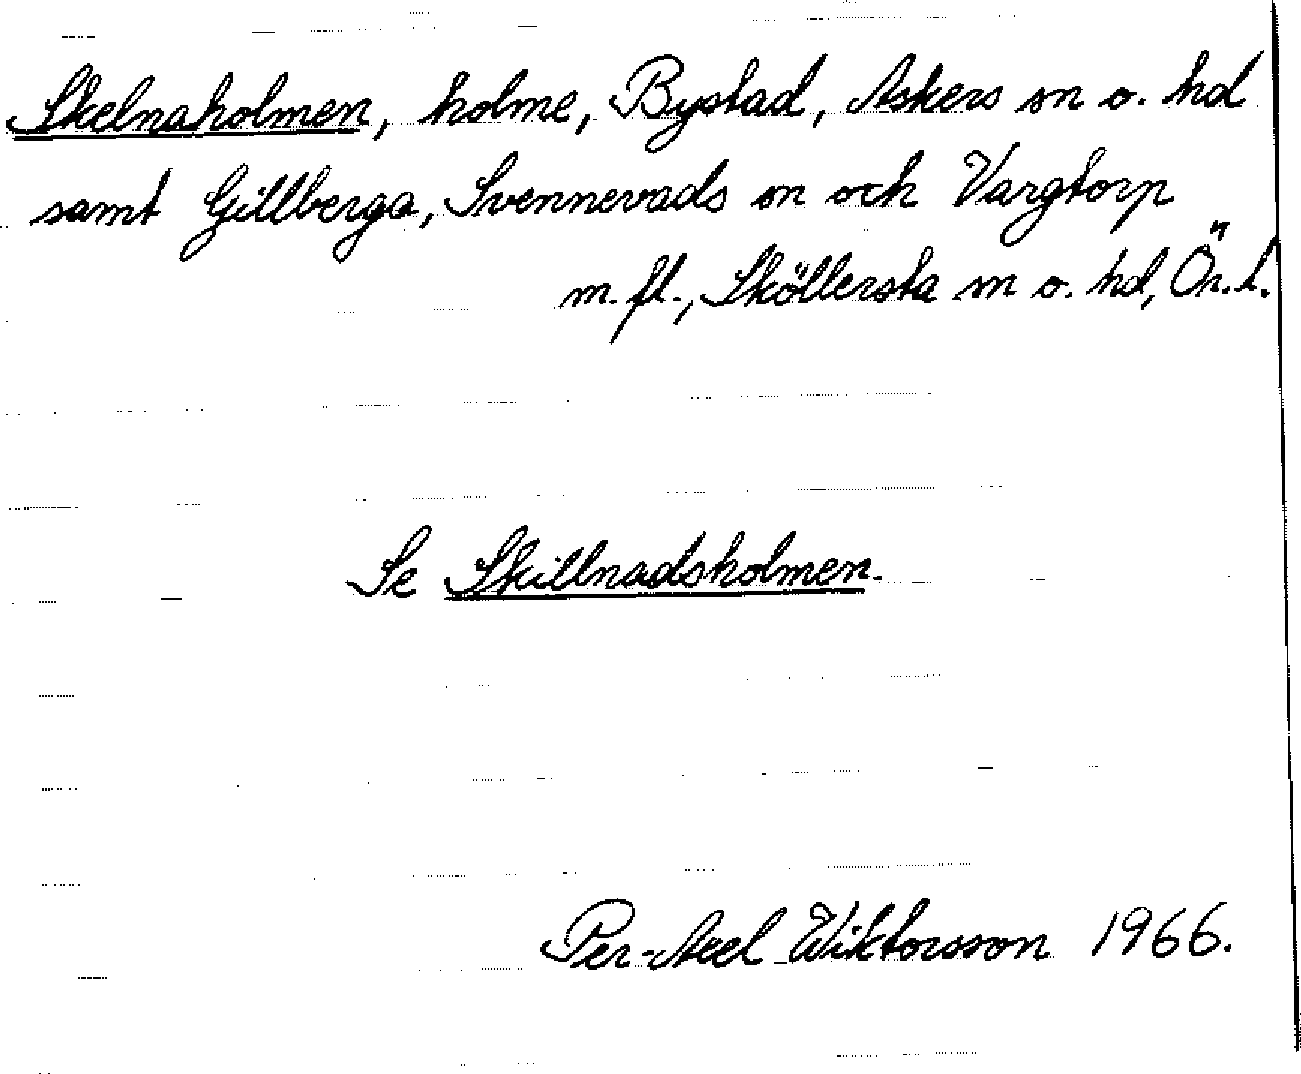 Skelnaholmen, holme, Bystad, Askers sn o. hd
samt Gillberga, Svennevads sn och Vargtorp
m. fl., Sköllersta sn o. hd, Ör. l.
Se Skillnadsholmen.
Per-Axel Wiktorsson 1966.